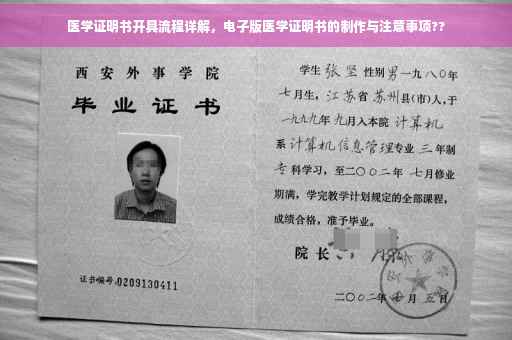 医学证明书开具流程详解，电子版医学证明书的制作与注意事项??
西安外事学院
毕业证书
证书编号:0209130411
学生 张坚 性别 男 一九八0年
七月生，江苏省 苏州 县(市)人,于
一九九九年 九月入本院 计算机
系 计算机信息管理 专业 三 年制
专 科学习，至二〇〇二年 七月修业
期满，学完教学计划规定的全部课程，
成绩合格，准予毕业。
院长
二〇〇二年 七 月 五 日